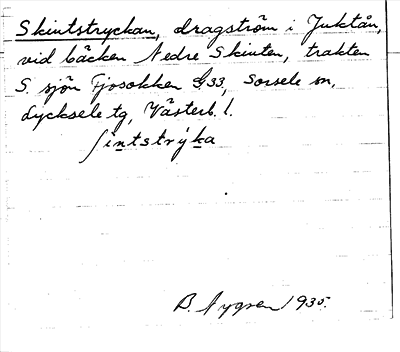 Skintstryckan, dragström i Juktån,
vid bäcken Nedre Skinten, trakten
S. sjön Fjosokken G33, Sorsele sn,
Lycksele tg, Västerb. l.
ʃintstrýka
B. Nygren 1935.